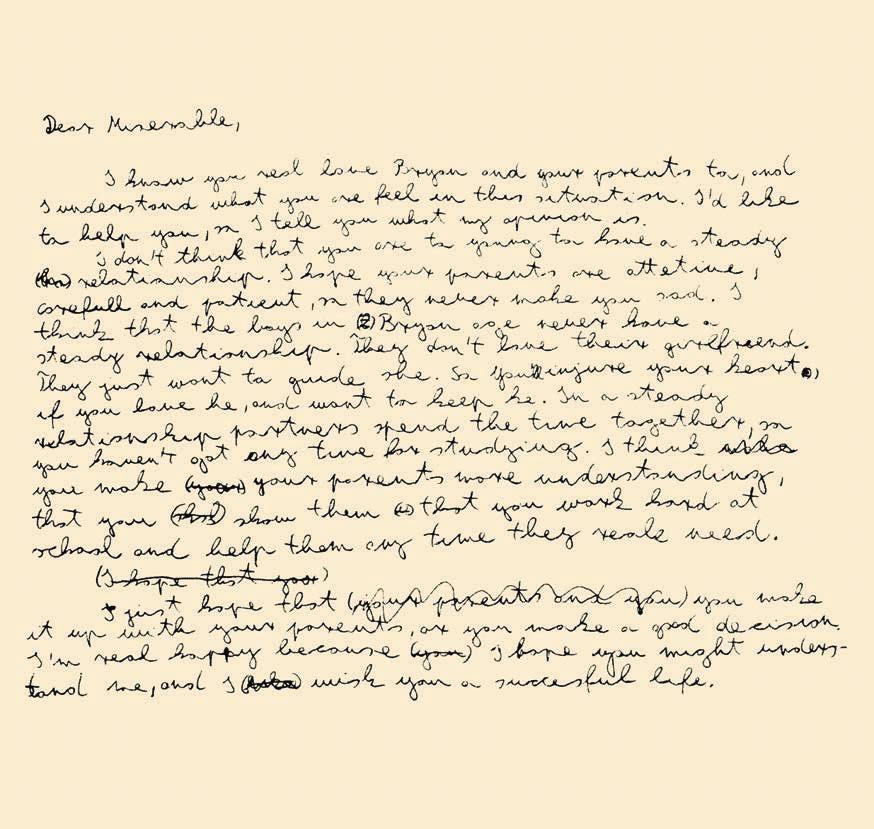 Dear Miserable,
I know you real love Bryan and your parents to, and
I understand what you are feel in this situation. I'd like
to help you, so I tell you what my opinion is.
I don't think that you are to young to have a steady
relationship. I hope your parents are attetive,
carefull and patient, so they never make you sad. I
think that the boys in Bryan age never have a
steady relationship. They don't love their girlfreend.
They just want to guide she. So you'll injure your heart,
if you love he, and want to keep he. In a steady
relationship partners spend the time together, so
you haven't got any time for studying. I think
you make your parents more understanding,
that you show them that you work hard at
school and help them any time they reale need.
(I hope that your)
I just hope that (your parents and you) you make
it up with your parents, or you make a good decision.
I'm real happy because (you) I hope you might unders-
tand me, and I wish you a succesful life.